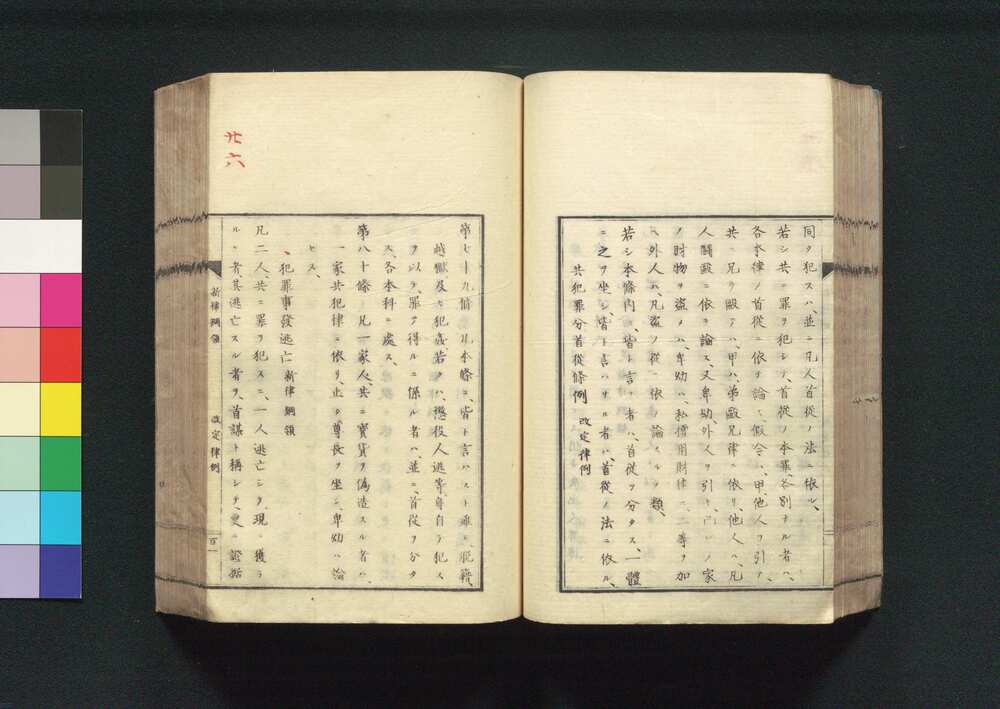 同ク犯スハ、並ニ凡人首從ノ法ニ依ル、
若シ共ニ罪ヲ犯シテ、首從ノ本罪、各別ナル者ハ、
各本律ノ首從ニ依テ論ス、假令ハ、甲、他人ヲ引テ、
共ニ兄ヲ毆テハ、甲ハ、弟毆兄律ニ依リ、他人ハ、凡
人鬪毆ニ依テ論ス、又卑幼、外人ヲ引テ、己レノ家
ノ財物ヲ盜メハ、卑幼ハ、私擅用財律ニ、二等ヲ加
ヘ、外人ハ、凡盜ノ從ニ依テ論スルノ類、
若シ本條內、皆ト言フ者ハ、首從ヲ分タス、一體
ニ之ヲ坐シ、皆ト言ハサル者ハ、首從ノ法ニ依ル、
共犯罪分首從條例 改定律例
第七十九條 凡本條ニ、皆ト言ハスト雖モ、脫籍、
越獄及ヒ犯姦若クハ、懲役人逃等、身自ラ犯ス
ヲ以テ、罪ヲ得ルニ係ル者ハ、並ニ、首從ヲ分タ
ス、各本科ニ處ス、
第八十條 凡一家人、共ニ寶貨ヲ僞造スル者ハ、
一家共犯律ニ依リ、止タ尊長ヲ坐シ、卑幼ハ論
セス、
犯罪事發逃亡 新律綱領
凡二人、共ニ罪ヲ犯スニ、一人逃亡シタ、現ニ獲ラ
ルヽ者、其逃亡スル者ヲ、首謀ト稱シテ、更ニ證據
新律綱領 改定律例
廿六